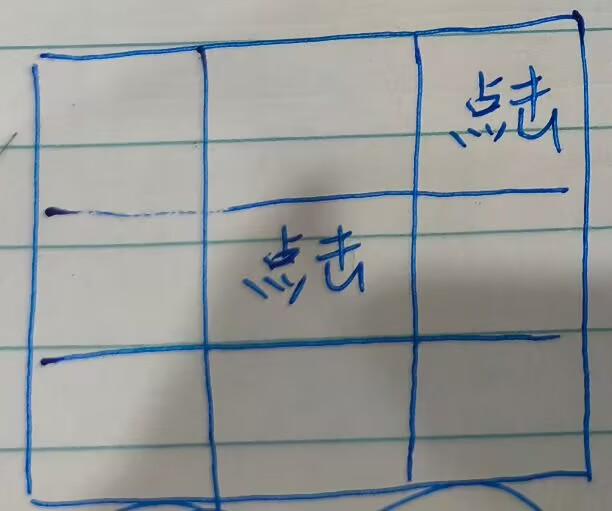 点击
点击